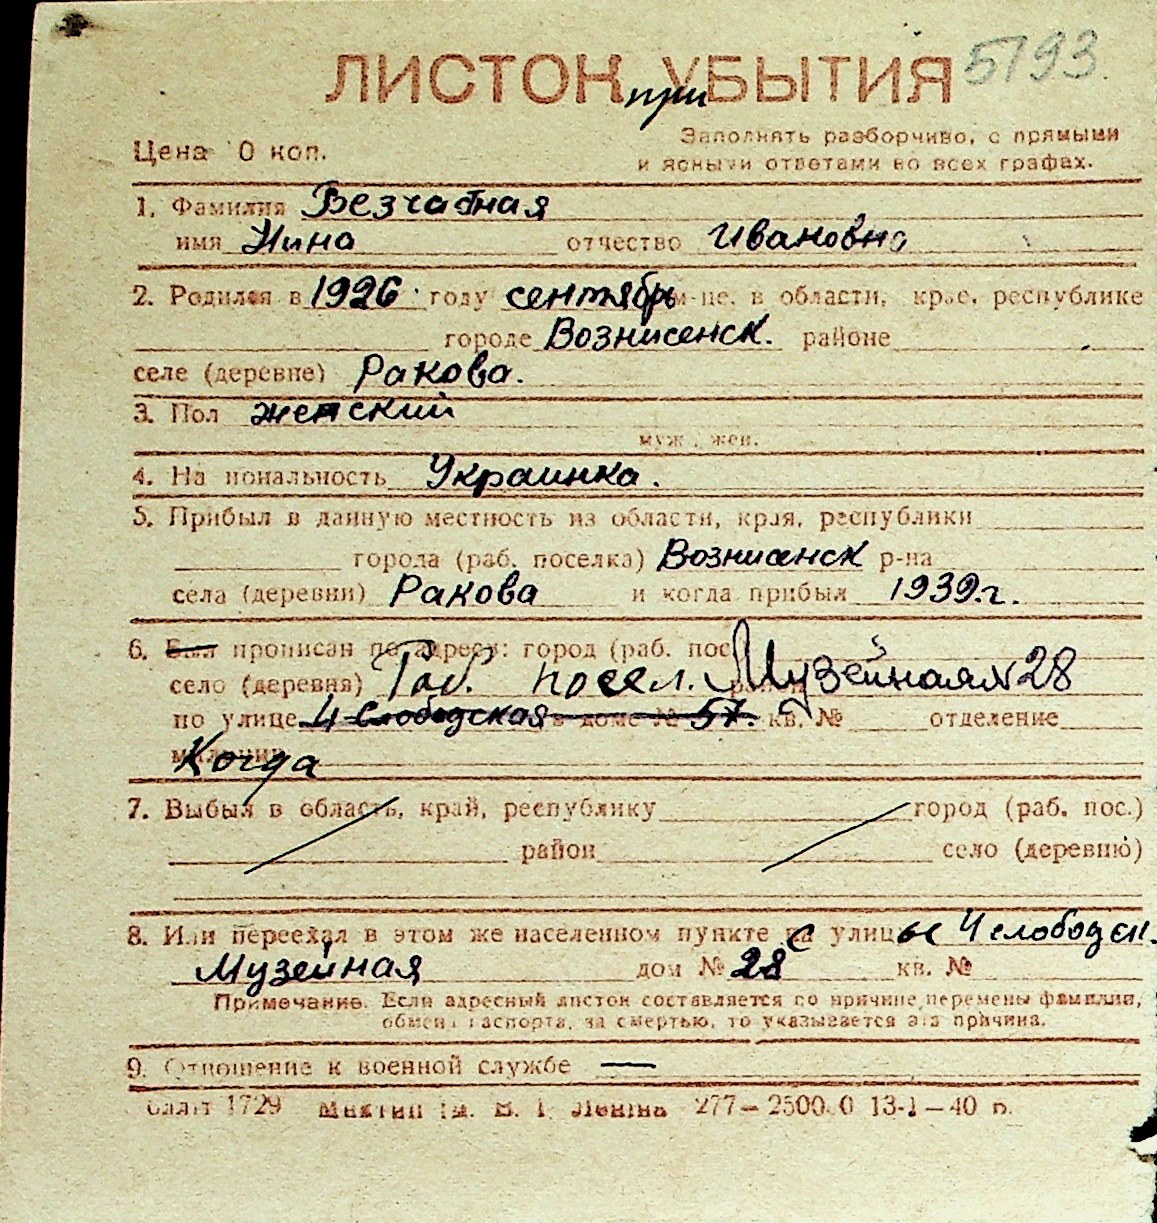 ЛИСТОН УБЫТИЯ 5193
при
Цена 0 коп.
Заполнять разборчиво, с прямыми
и ясными ответами во всех графах.
1. Фамилия Безчабная
имя Нина отчество Ивановна
2. Родился в 1926 году сентябрь м-це. в области, крае, республике
городе Вознисенск. районе
селе (деревне) Ракова.
3. Пол женский
муж., жен.
4. Национальность Украинка.
5. Прибыл в данную местность из области, края, республики
города (раб. поселка) Вознисенск р-на
села (деревни) Ракова и когда прибыл 1939.г.
6. Был прописан по адресу: город (раб. пос
село (деревня) Раб. посел. Музейная № 28
по улице 4 Слободская в доме № 57. кв. № отделение
милиции Когда
7. Выбыл в область, край, республику город (раб. пос.)
район село (деревню)
8. Или переехал в этом же населенном пункте с улицы 4 слободск.
Музейная дом № 28 кв. №
Примечание. Если адресный листок составляется по причине перемены фамилии,
обмена паспорта, за смертью, то указывается эта причина.
9. Отношение к военной службе —
1729 им. В. І. Леніна 277—2500.0 13-1—40 р.